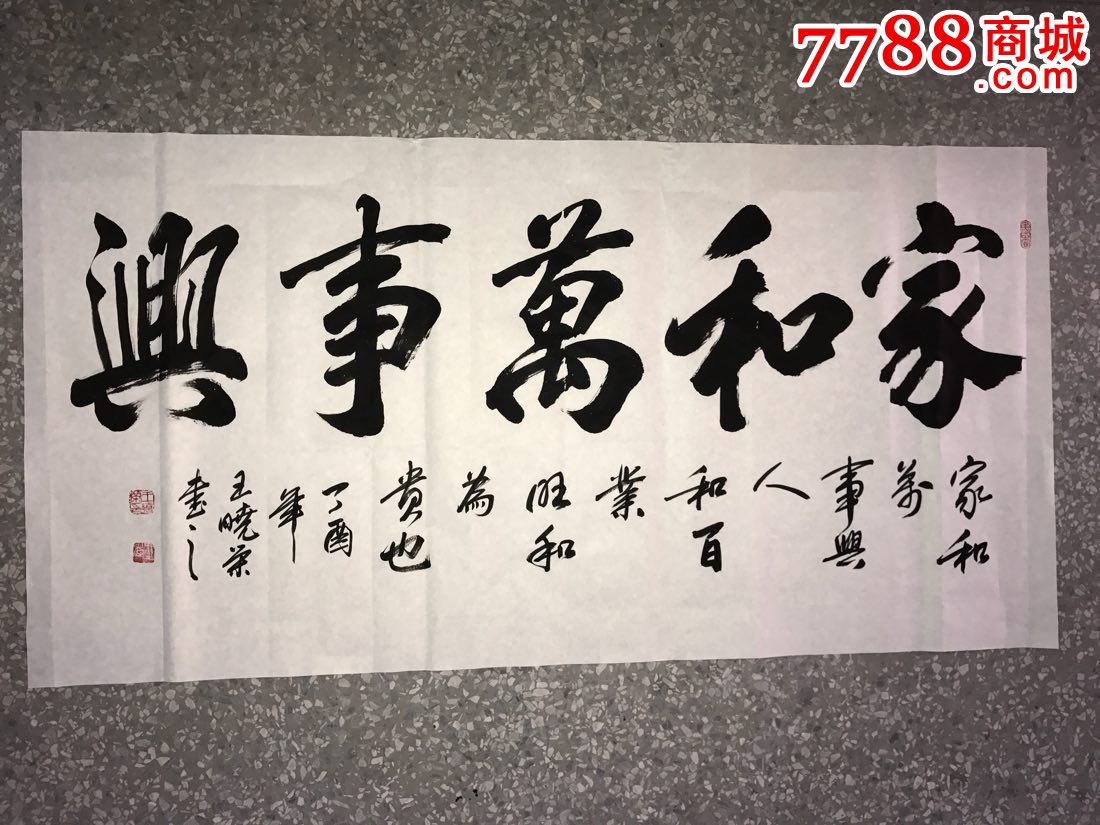 7788商城
.com
家和萬事興
家和
萬
事興
人
和百
業
旺和
為
貴也
丁酉
年
王曉榮
書之